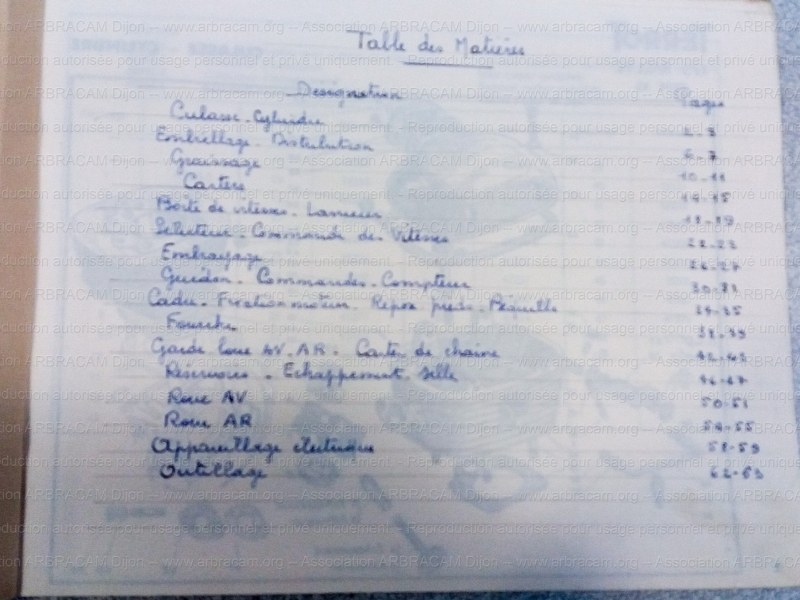 Table des Matières
Désignation Pages
Culasse - Cylindre 2-3
Embiellage - Distribution 6-7
Graissage 10-11
Carters 14-15
Boîte de vitesses - Lanceur 18-19
Sélecteur - Commande des Vitesses 22-23
Embrayage 26-27
Guidon - Commandes - Compteur 30-31
Cadre - Fixation moteur - Repose pieds - Béquille 34-35
Fourche 38-39
Garde boue AV - AR - Carter de chaine 42-43
Réservoirs - Echappement - Selle 46-47
Roue AV 50-51
Roue AR 54-55
Appareillage électrique 58-59
Outillage 62-63
Association ARBRACAM Dijon -- www.arbracam.org
Reproduction autorisée pour usage personnel et privé uniquement